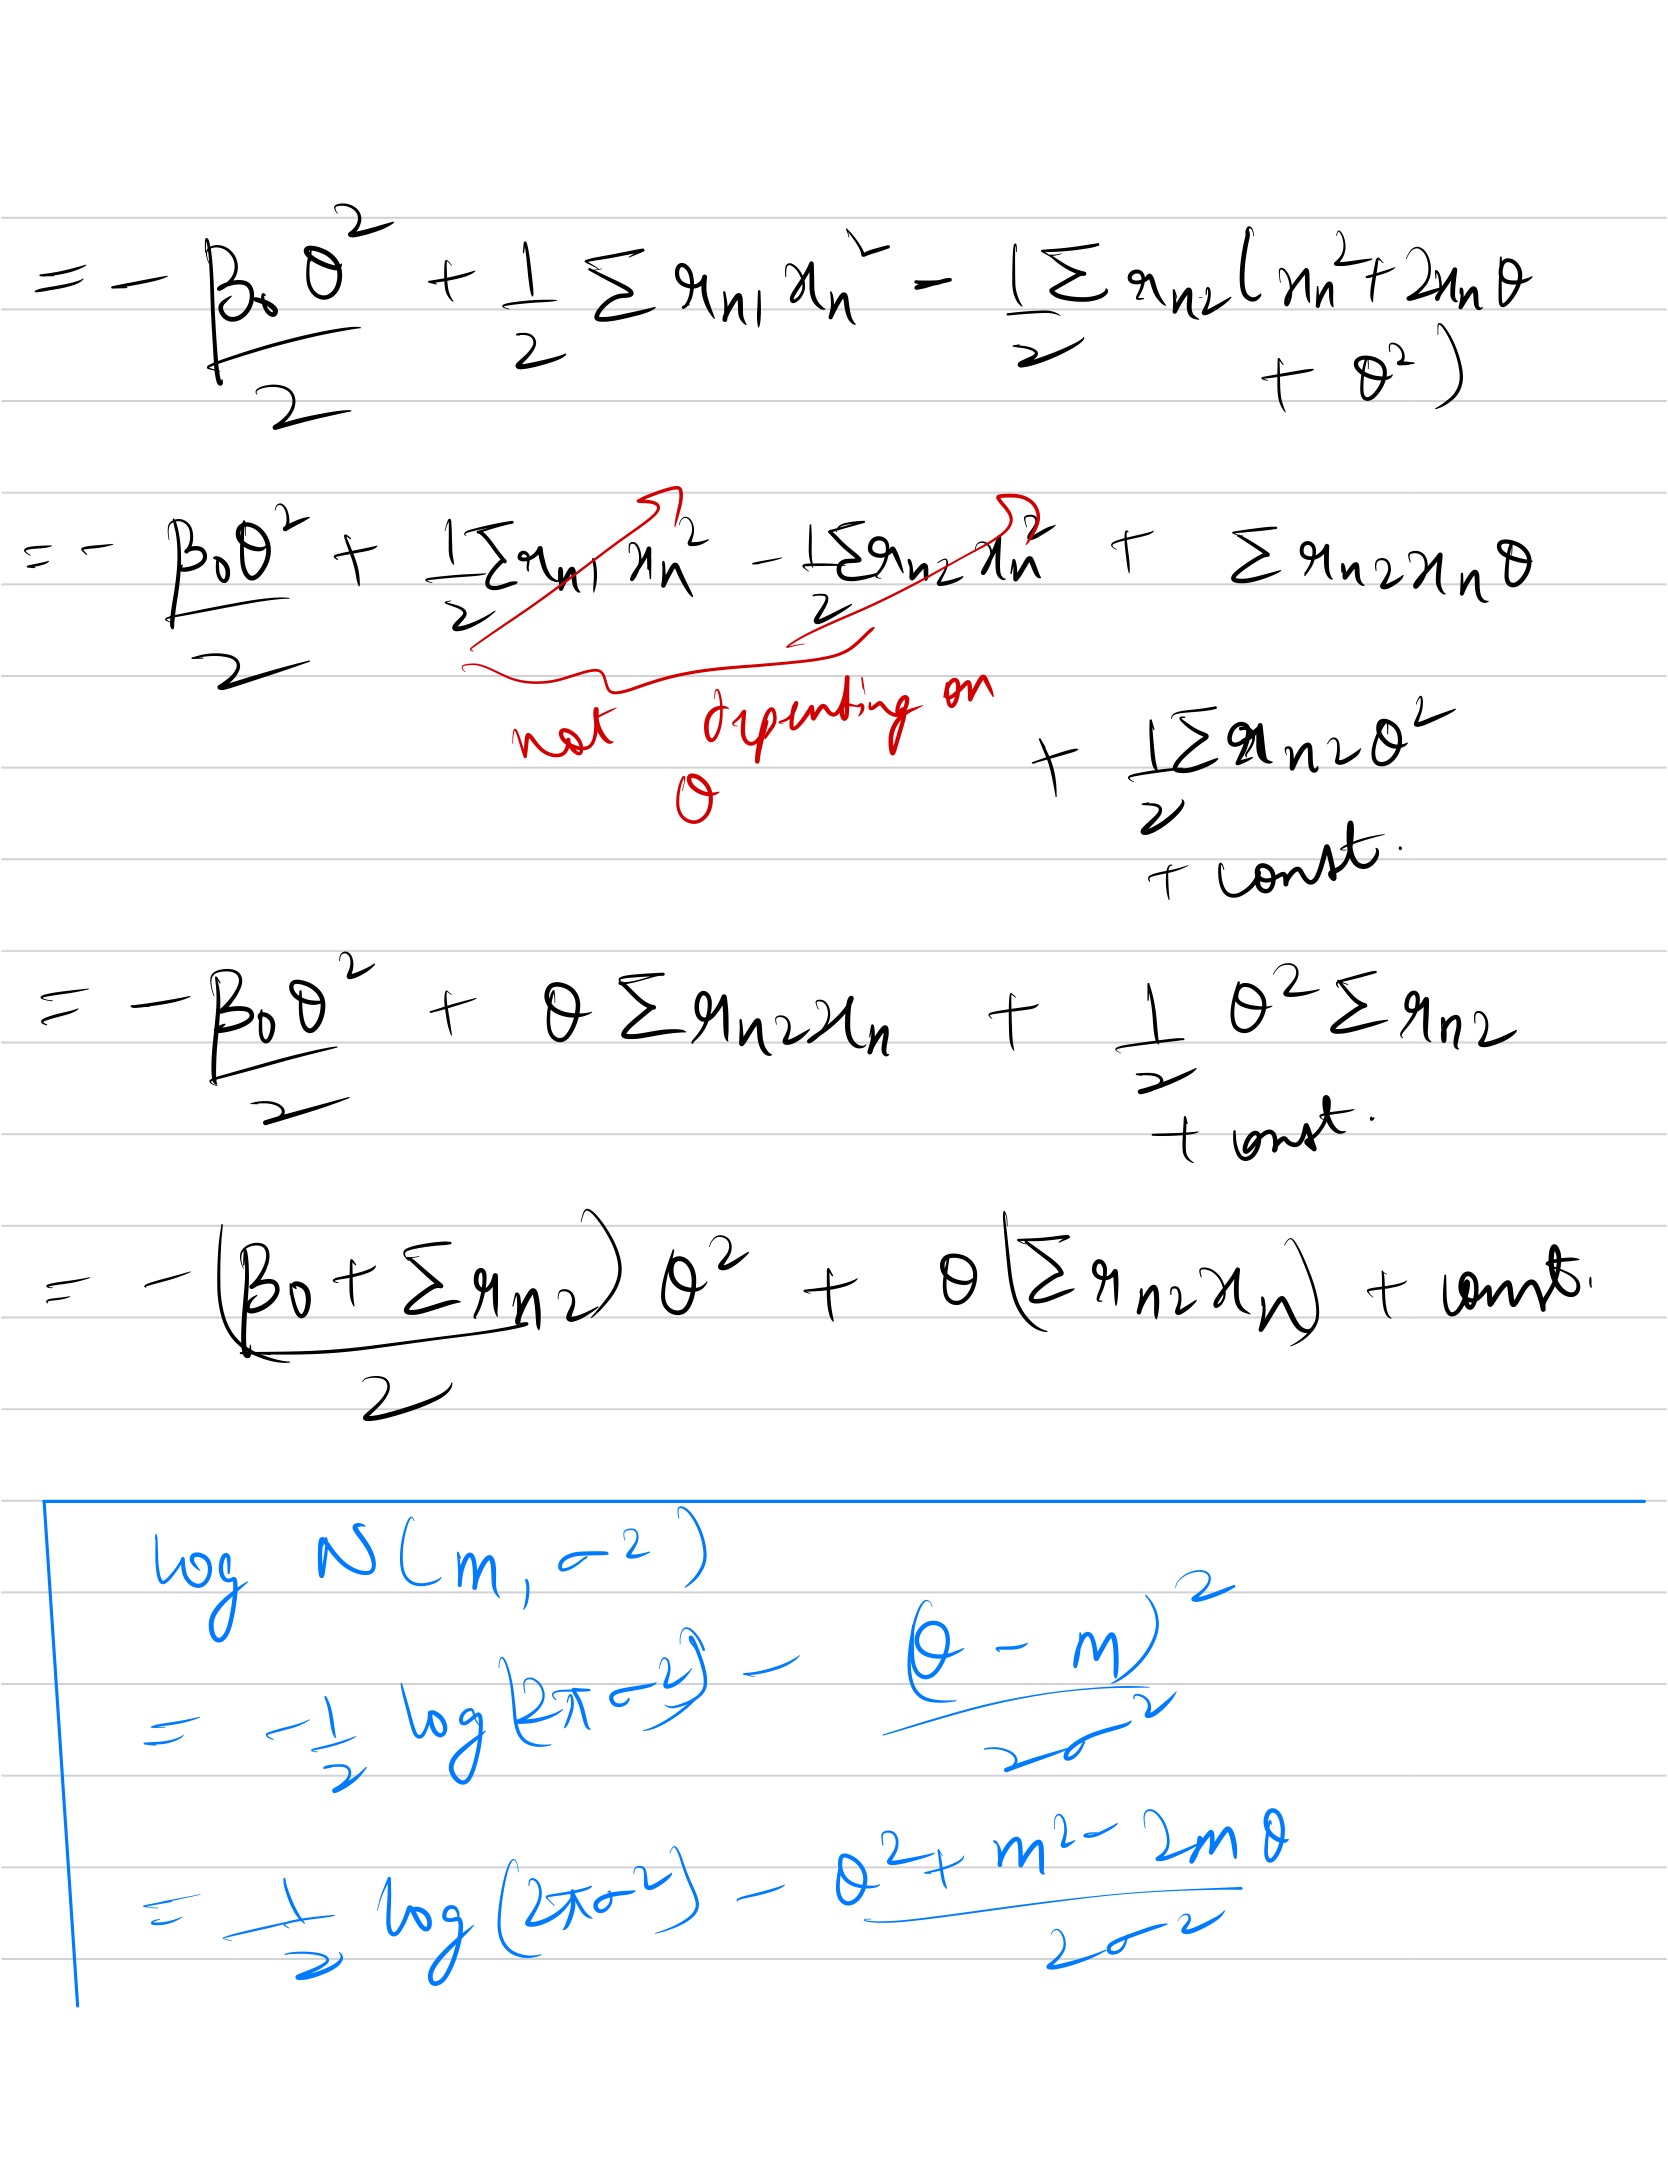 = - β₀θ²/2 + 1/2 Σ r_{n1} x_n² - 1/2 Σ r_{n2} (x_n² + 2x_nθ
+ θ²)
= - β₀θ²/2 + 1/2 Σ r_{n1} x_n² - 1/2 Σ r_{n2} x_n² + Σ r_{n2} x_n θ
not depending on
θ
+ 1/2 Σ r_{n2} θ²
+ const.
= - β₀θ²/2 + θ Σ r_{n2} x_n + 1/2 θ² Σ r_{n2}
+ const.
= - (β₀ + Σ r_{n2})/2 θ² + θ (Σ r_{n2} x_n) + const.
log N(m, σ²)
= -1/2 log(2πσ²) - (θ - m)²/2σ²
= 1/2 log(2πσ²) - θ² + m² - 2mθ/2σ²